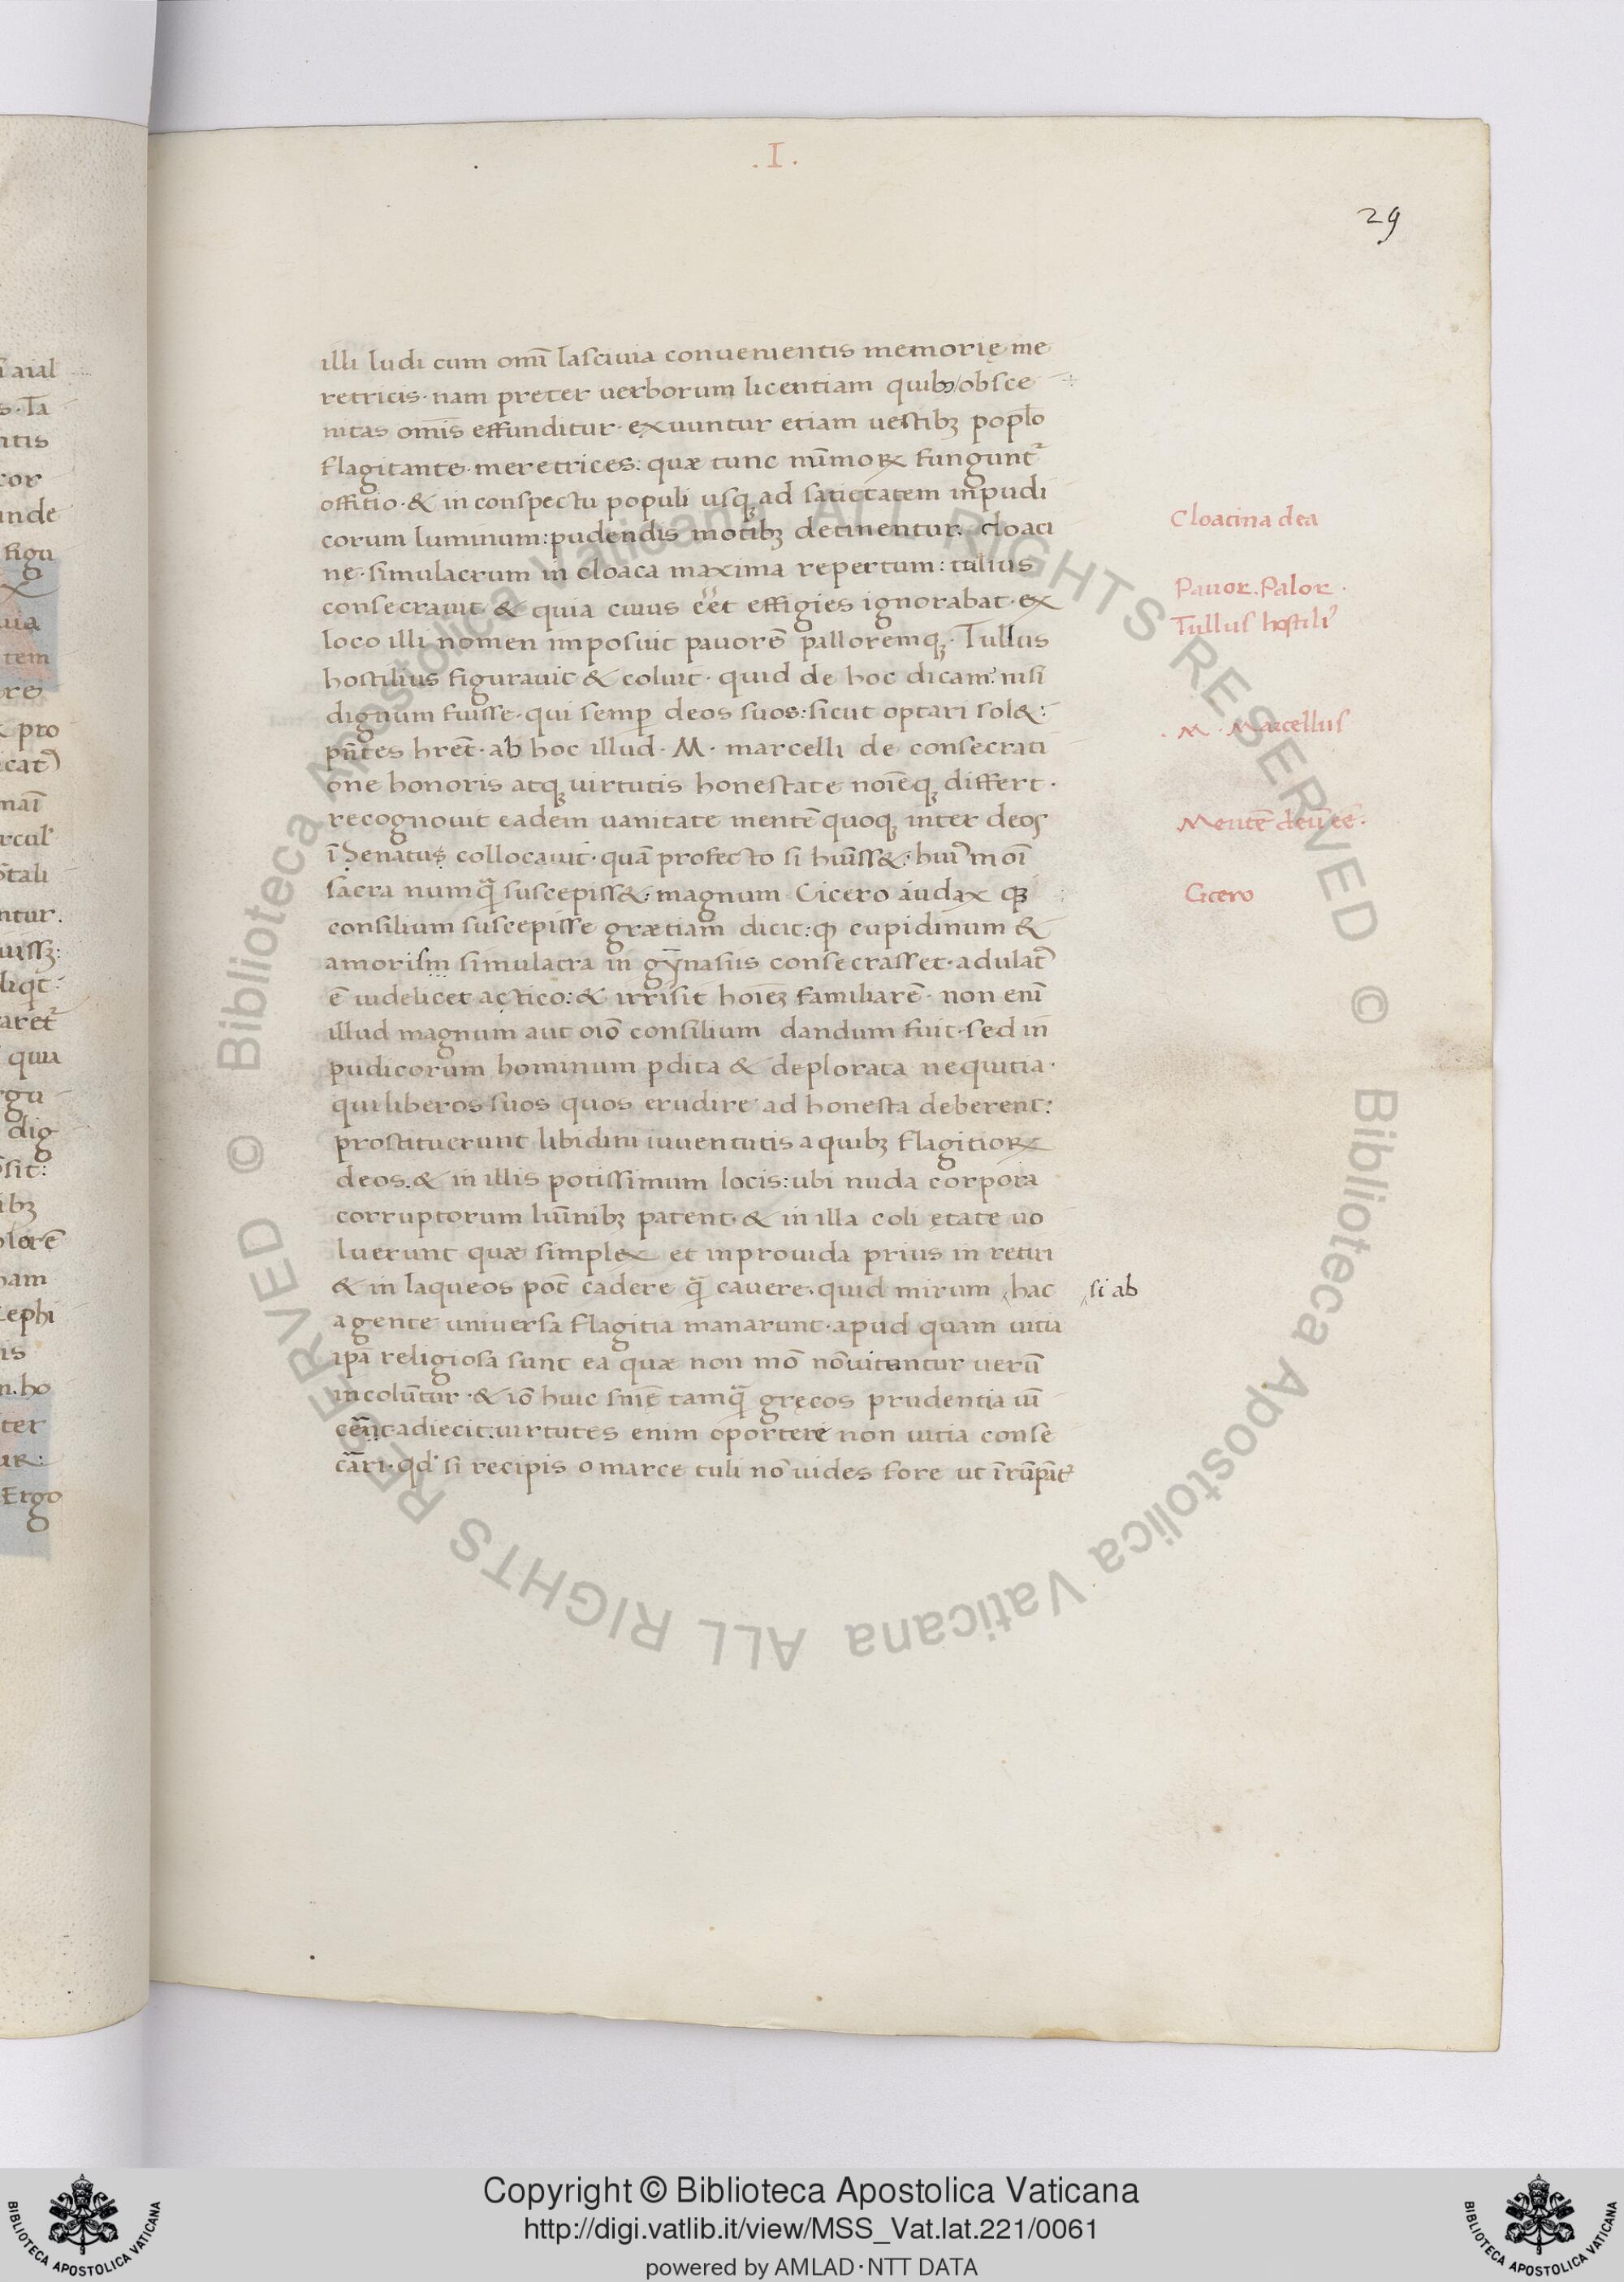 .I.
29
illi ludi cum om̄i lasciuia conuenientis memorię me
retricis· nam preter uerborum licentiam quibꝫ obsce
nitas om̄is effunditur· exuuntur etiam uestibꝫ poplo
flagitante· meretrices: quæ tunc mīmoꝝ fungunt᷑
offitio· & in conspectu populi usqꝫ ad satietatem inpudi
corum luminum: pudendis motibꝫ detinentur. cloaci
nę· simulacrum in cloaca maxima repertum: tulius
consecrauit· & quia cuius eēt effigies ignorabat· ex
loco illi nomen imposuit pauorē palloremqꝫ· Tullus
hostilius figurauit & coluit· quid de hoc dicam? nisi
dignum fuisse· qui semꝑ deos suos: sicut optari sol&:
pn̄tes hrēt· ab hoc illud· M· marcelli de consecrati
one honoris atqꝫ uirtutis honestate noīeqꝫ differt·
recognouit eadem uanitate mentē quoqꝫ inter deos
ī Senatus collocauit· quā profecto si huīss&: hui᾿moi
sacra numq̄ suscepiss&: magnum Cicero audax qꝫ
consilium suscepisse grætiam dicit: ꝙ cupidinum &
amorism simulacra in gȳnasiis consecrasset· adulat᷑
ē uidelicet actico: & irrisit hoiēꝫ familiarē· non enī
illud magnum aut oīo consilium dandum fuit· sed in
pudicorum hominum ꝑdita & deplorata nequitia·
qui liberos suos quos erudire ad honesta deberent:
prostituerunt libidini iuuentutis a quibꝫ flagitioꝝ
deos. & in illis potissimum locis: ubi nuda corpora
corruptorum luīnibꝫ patent· & in illa coli etate uo
luerunt quæ simplex et inprouida prius in retiri
& in laqueos pōt cadere q̄ cauere· quid mirum hac
si ab
a gente uniuersa flagitia manarunt· apud quam uitia
ipā religiosa sunt ea quæ non mō nō uitantur uerū
in coluntur· & iō huic snīę tamq̄ gręcos prudentia uī
ceret adiecit: uirtutes enim oportere non uitia conse
crāri· qd᾿ si recipis o marce tuli nō uides fore ut īrūpāt᷑
Cloacina dea
Pauor. Palor.
Tullus hostili᾿
M. Marcellus
Mentē deū eē.
Cicero
Copyright © Biblioteca Apostolica Vaticana
http://digi.vatlib.it/view/MSS_Vat.lat.221/0061
powered by AMLAD·NTT DATA
BIBLIOTECA APOSTOLICA VATICANA
BIBLIOTECA APOSTOLICA VATICANA
© Biblioteca Apostolica Vaticana ALL RIGHTS RESERVED
© Biblioteca Apostolica Vaticana ALL RIGHTS RESERVED